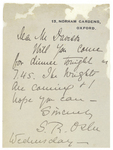 13, NORHAM GARDENS,
OXFORD.
Dear Mr
Will you come
for dinner tonight
7.45. The Wrights
are coming & I
hope you can —
Sincerely
Wednesday —